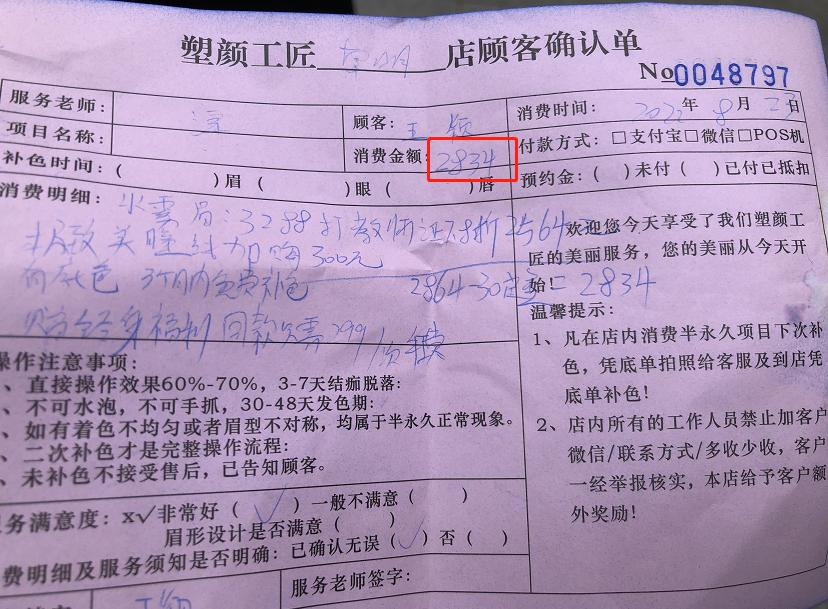 塑颜工匠 昆明 店顾客确认单
No0048797
服务老师：
顾客：王颖
消费时间：2022年8月23日
项目名称：
消费金额：2834
付款方式：□支付宝□微信□POS机
补色时间：（ ）眉（ ）眼（ ）唇
预约金：（ ）未付（ ）已付已抵扣
消费明细：水雲眉：3288打教师证8折2564元
极致美瞳线加购300元
有底色 3个月内免费补色 2864-30定金=2834
赠终身福利 同款只需299/次
欢迎您今天享受了我们塑颜工
匠的美丽服务，您的美丽从今天开
始！
温馨提示：
1、凡在店内消费半永久项目下次补
色，凭底单拍照给客服及到店凭
底单补色！
2、店内所有的工作人员禁止加客户
微信/联系方式/多收少收，客户
一经举报核实，本店给予客户额
外奖励！
操作注意事项：
、直接操作效果60%-70%，3-7天结痂脱落：
、不可水泡，不可手抓，30-48天发色期：
、如有着色不均匀或者眉型不对称，均属于半永久正常现象。
、二次补色才是完整操作流程：
、未补色不接受售后，已告知顾客。
务满意度：x√非常好（✓）一般不满意（ ）
眉形设计是否满意（ ）
费明细及服务须知是否明确：已确认无误（✓）否（ ）
服务老师签字：